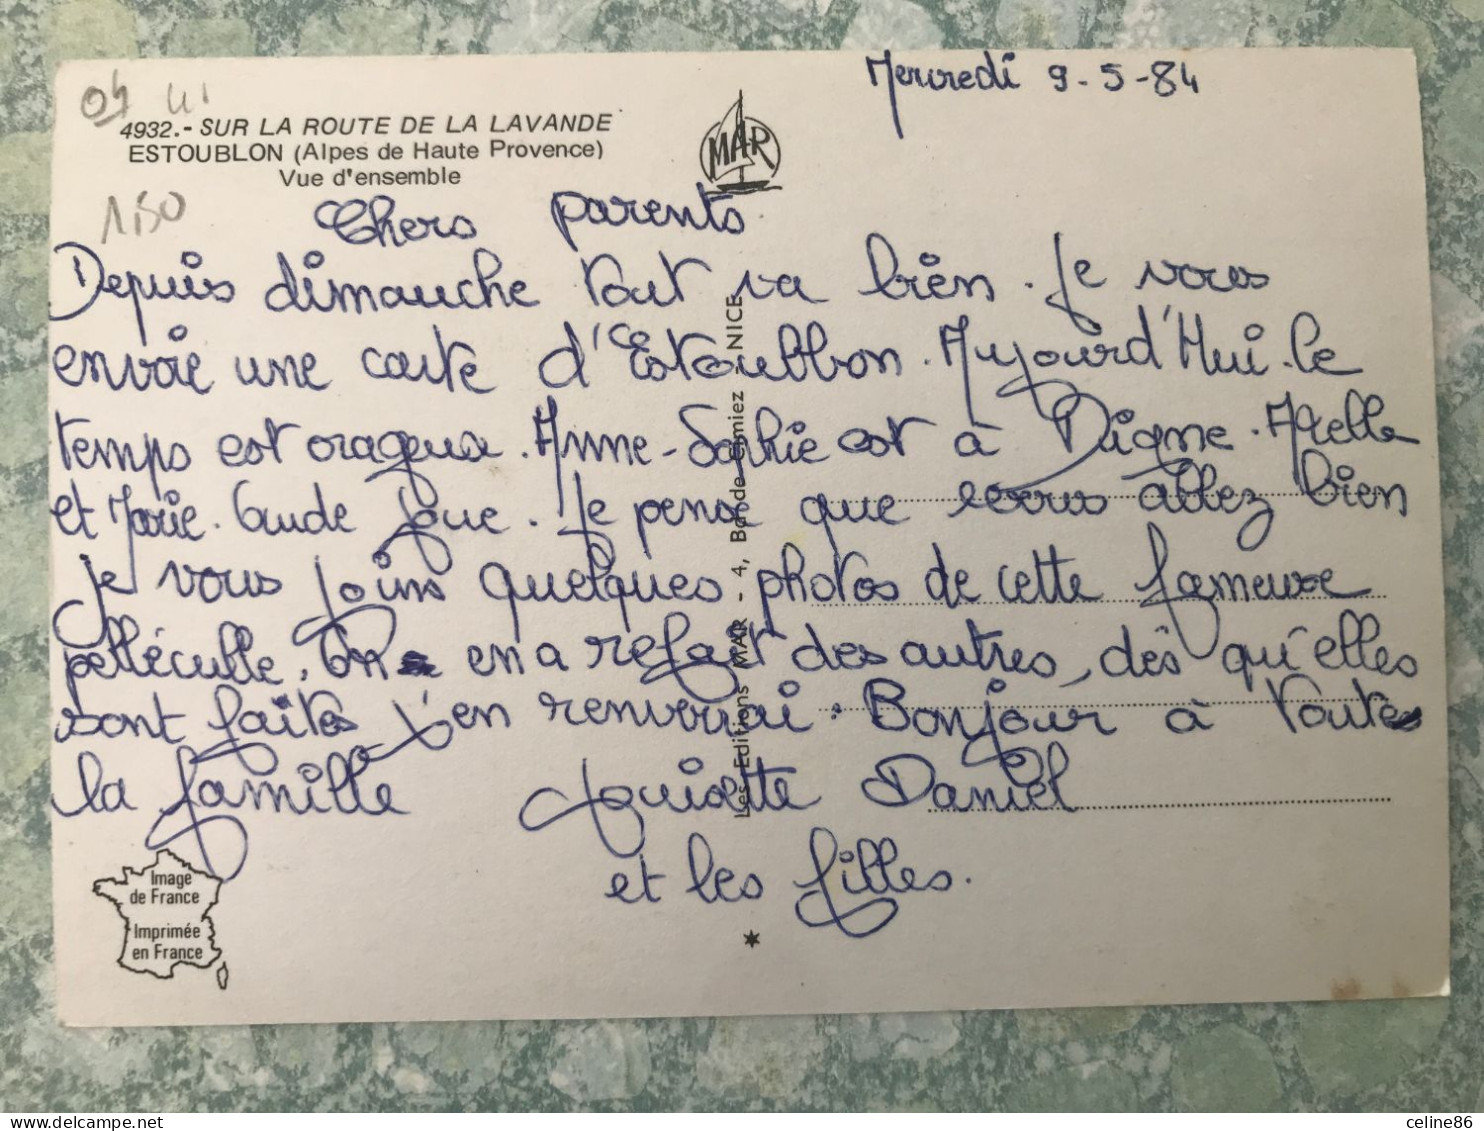 Mercredi 9-5-84
04
4932.- SUR LA ROUTE DE LA LAVANDE
ESTOUBLON (Alpes de Haute Provence)
Vue d'ensemble
MAR
1,50
Chers parents
Depuis dimanche tout va bien. Je vous
envoie une carte d'Estoubbon. Aujourd'Hui. le
temps est orageux. Anne-Sophie est à Digne. Axelle
et Marie. Gaude joue. Je pense que vous allez bien
Je vous joins quelques photos de cette fameuse
pelléculle. On en a refait des autres, dès qu'elles
sont faites j'en renverrai. Bonjour à toute
la famille Jquisette Daniel
et les filles.
Les Editions MAR - 4, Bd de Cimiez NICE
Image
de France
Imprimée
en France
delcampe.net
celine86